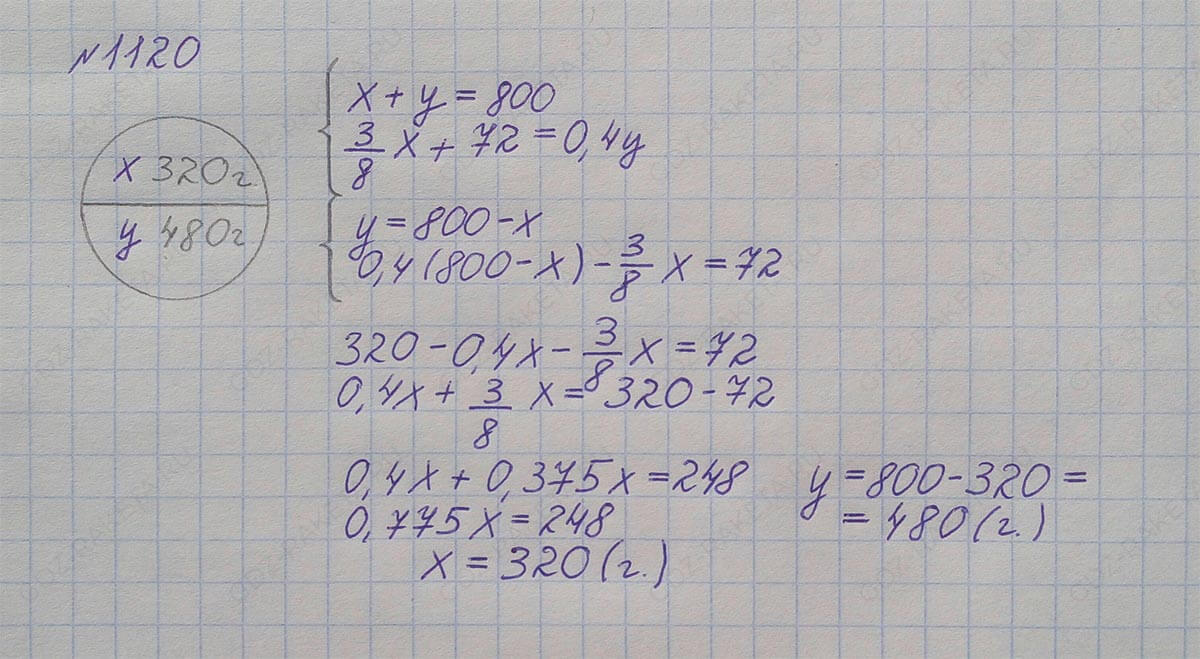 №1120
x + y = 800
3/8 x + 72 = 0,4y
x 320г.
y 480г
y = 800 - x
0,4(800 - x) - 3/8 x = 72
320 - 0,4x - 3/8 x = 72
0,4x + 3/8 x = 320 - 72
0,4x + 0,375x = 248
0,775x = 248
x = 320 (г.)
y = 800 - 320 =
= 480 (г.)